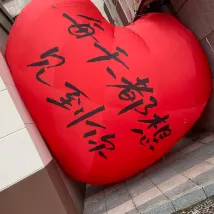 每天都想
见到你